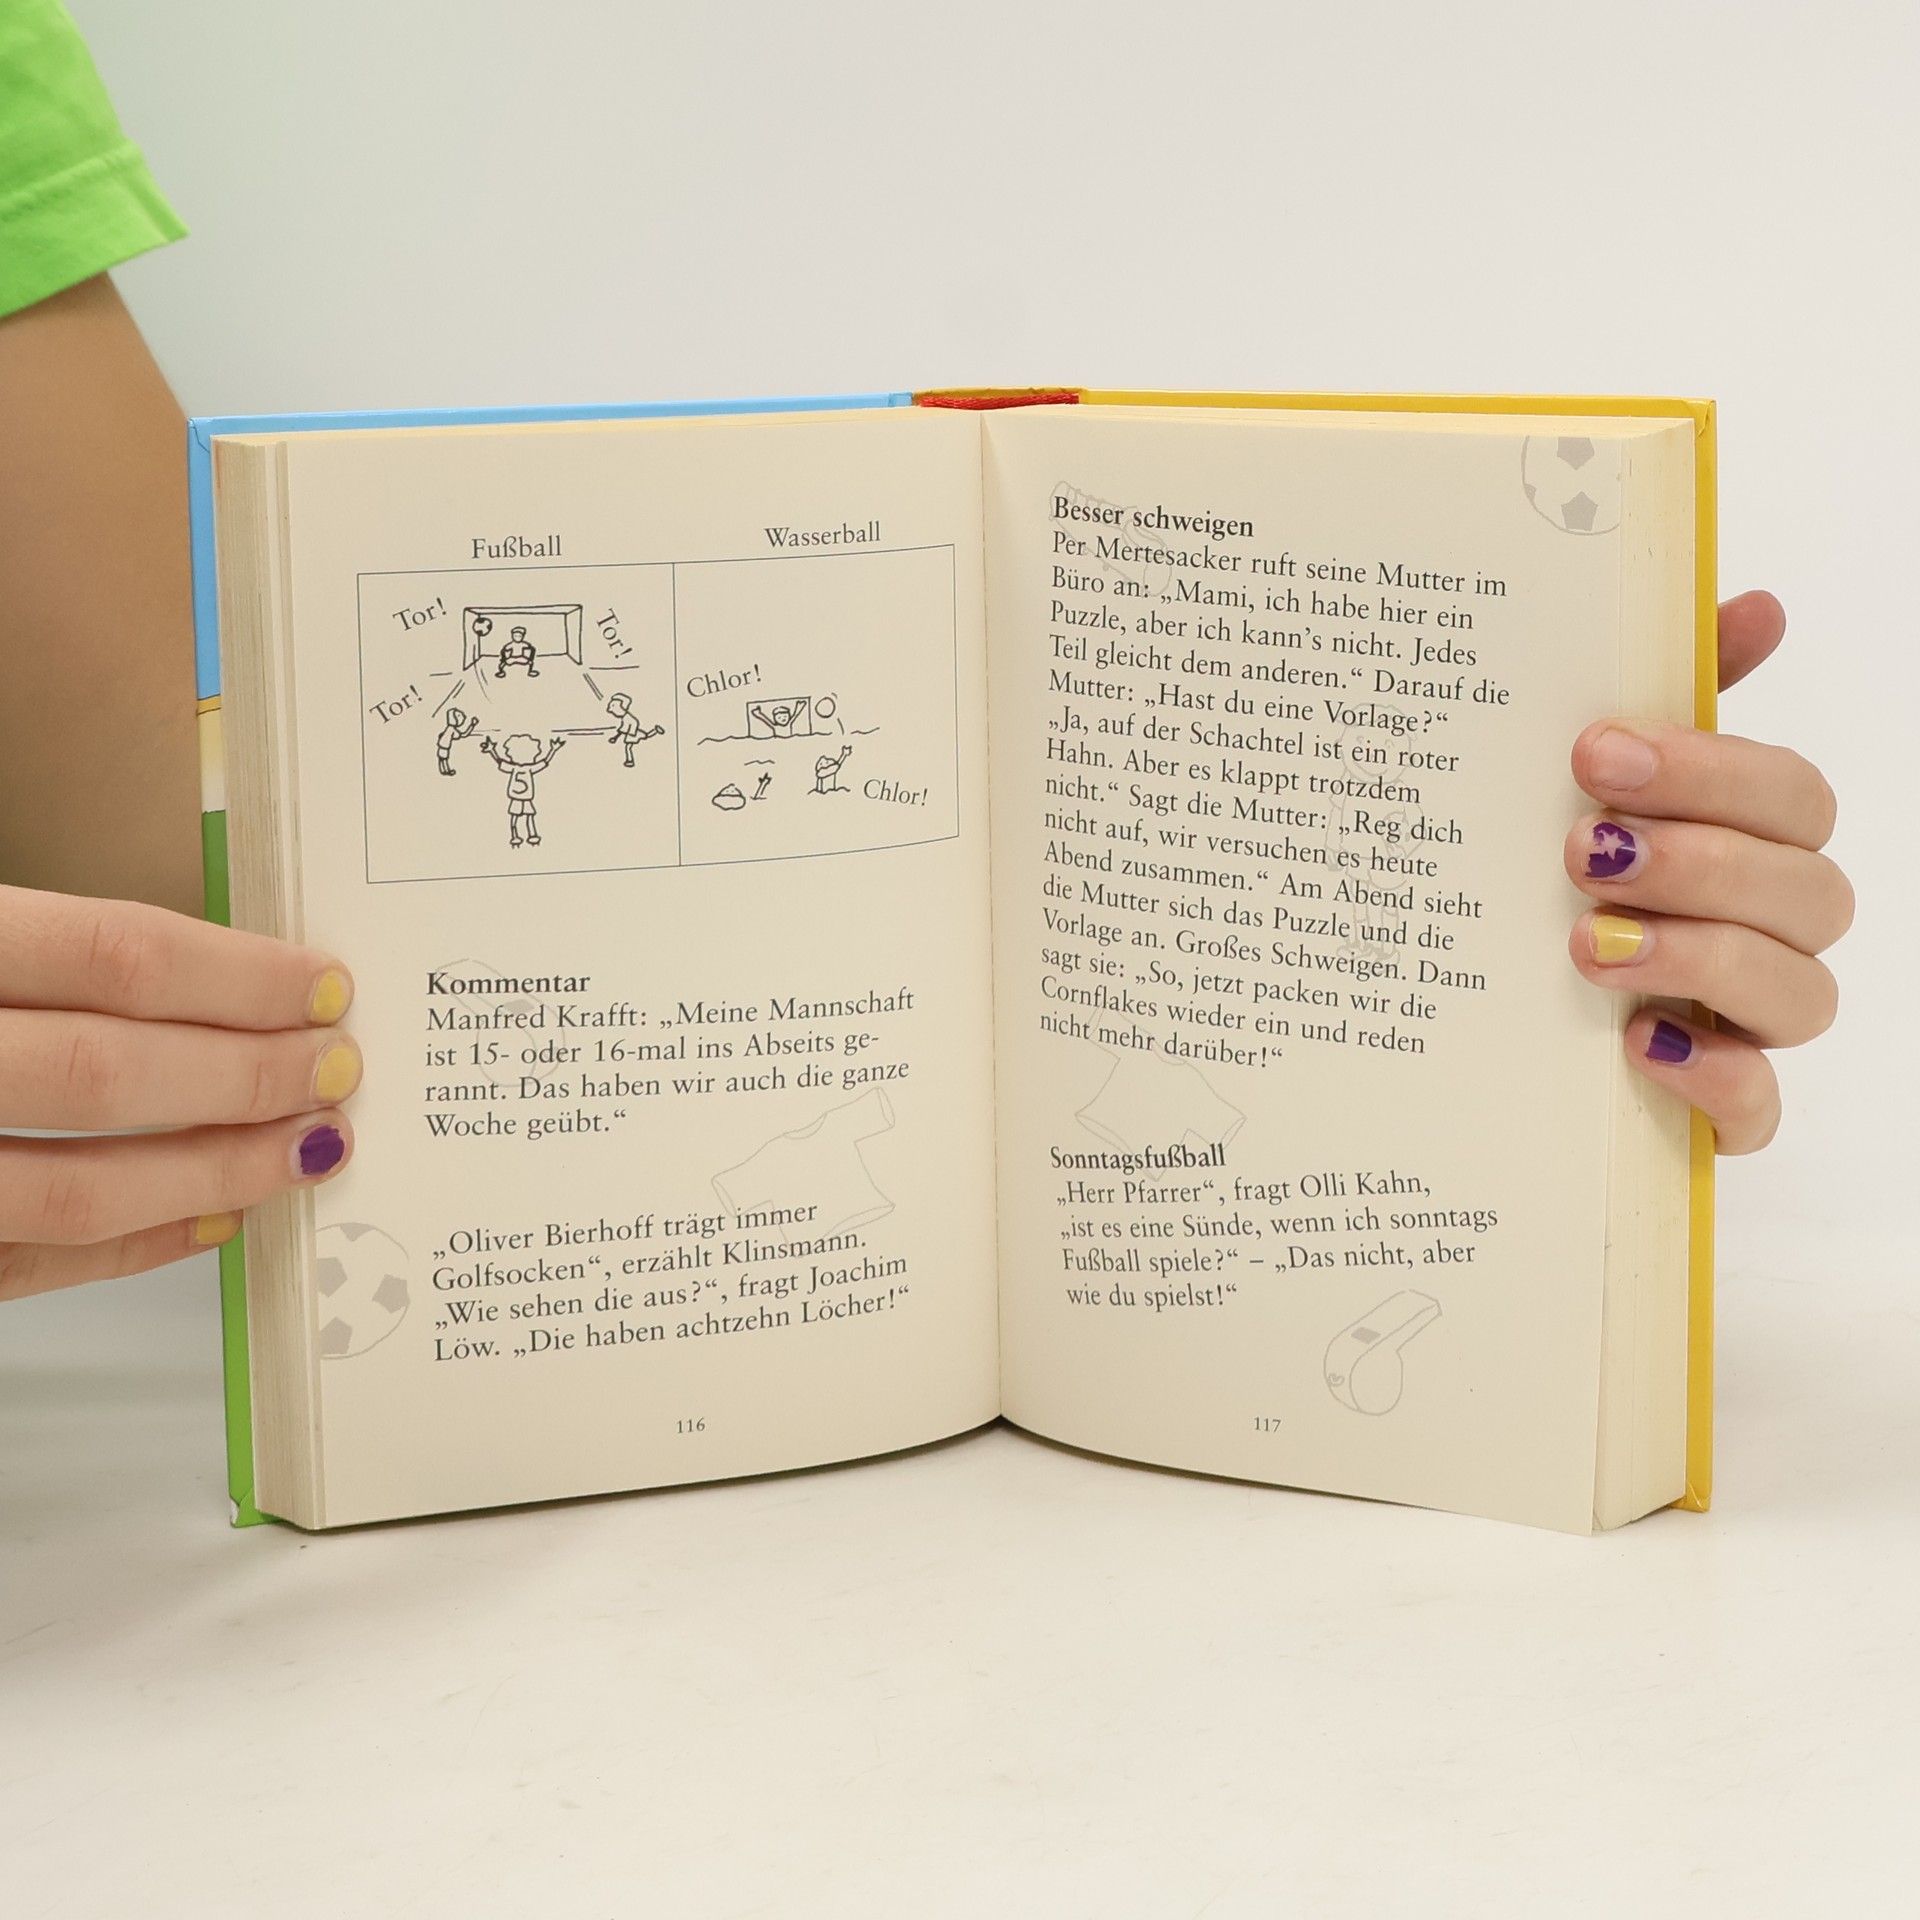 Fußball
Wasserball
Tor!
Tor!
Tor!
5
Chlor!
Chlor!
Kommentar
Manfred Krafft: „Meine Mannschaft
ist 15- oder 16-mal ins Abseits ge-
rannt. Das haben wir auch die ganze
Woche geübt.“
„Oliver Bierhoff trägt immer
Golfsocken“, erzählt Klinsmann.
„Wie sehen die aus?“, fragt Joachim
Löw. „Die haben achtzehn Löcher!“
116
Besser schweigen
Per Mertesacker ruft seine Mutter im
Büro an: „Mami, ich habe hier ein
Puzzle, aber ich kann’s nicht. Jedes
Teil gleicht dem anderen.“ Darauf die
Mutter: „Hast du eine Vorlage?“
„Ja, auf der Schachtel ist ein roter
Hahn. Aber es klappt trotzdem
nicht.“ Sagt die Mutter: „Reg dich
nicht auf, wir versuchen es heute
Abend zusammen.“ Am Abend sieht
die Mutter sich das Puzzle und die
Vorlage an. Großes Schweigen. Dann
sagt sie: „So, jetzt packen wir die
Cornflakes wieder ein und reden
nicht mehr darüber!“
Sonntagsfußball
„Herr Pfarrer“, fragt Olli Kahn,
„ist es eine Sünde, wenn ich sonntags
Fußball spiele?“ – „Das nicht, aber
wie du spielst!“
117